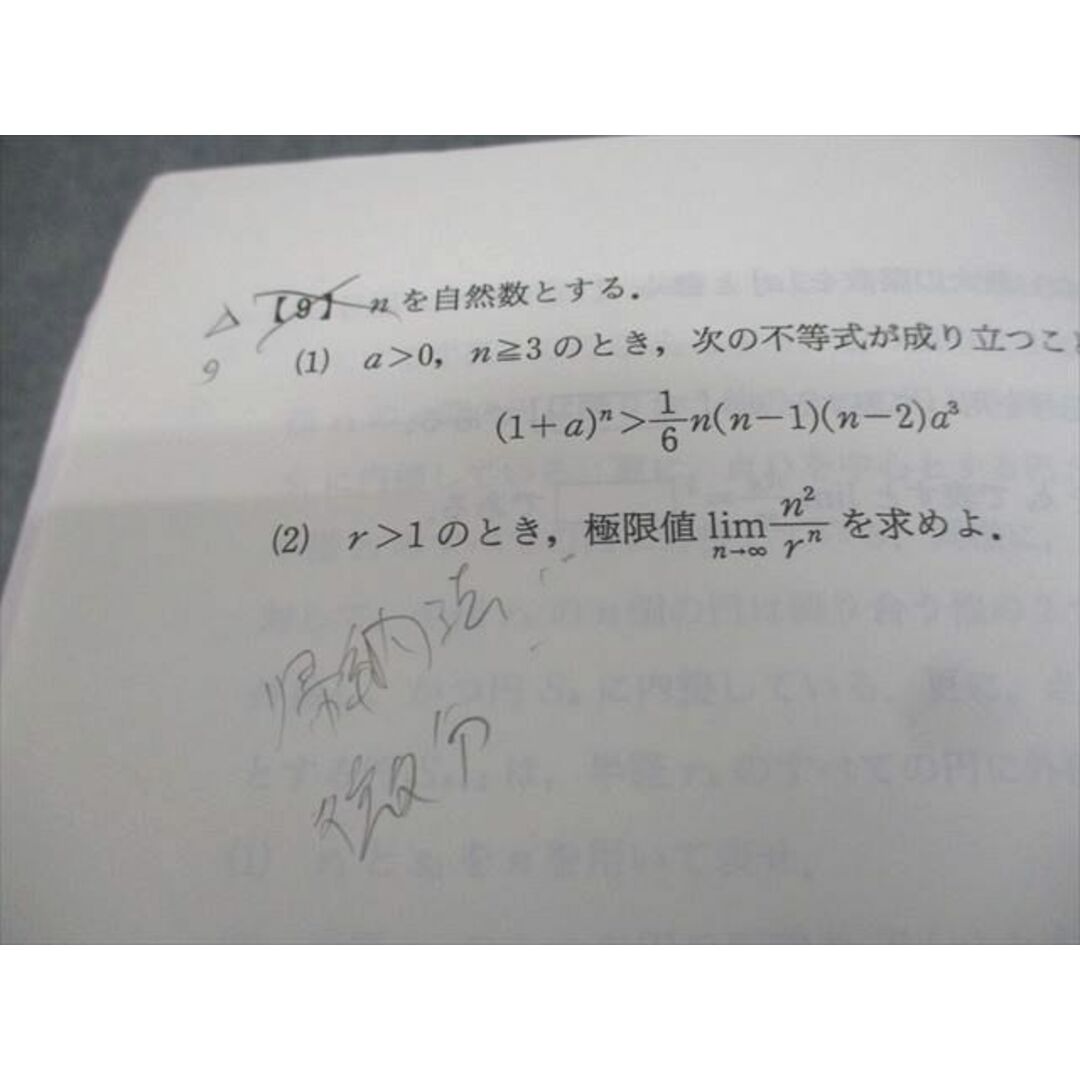 【9】 nを自然数とする.
△
9
(1) a>0, n≧3のとき, 次の不等式が成り立つこ
(1+a)ⁿ>1/6 n(n-1)(n-2)a³
(2) r>1のとき, 極限値 lim n→∞ n²/rⁿ を求めよ.
帰納法